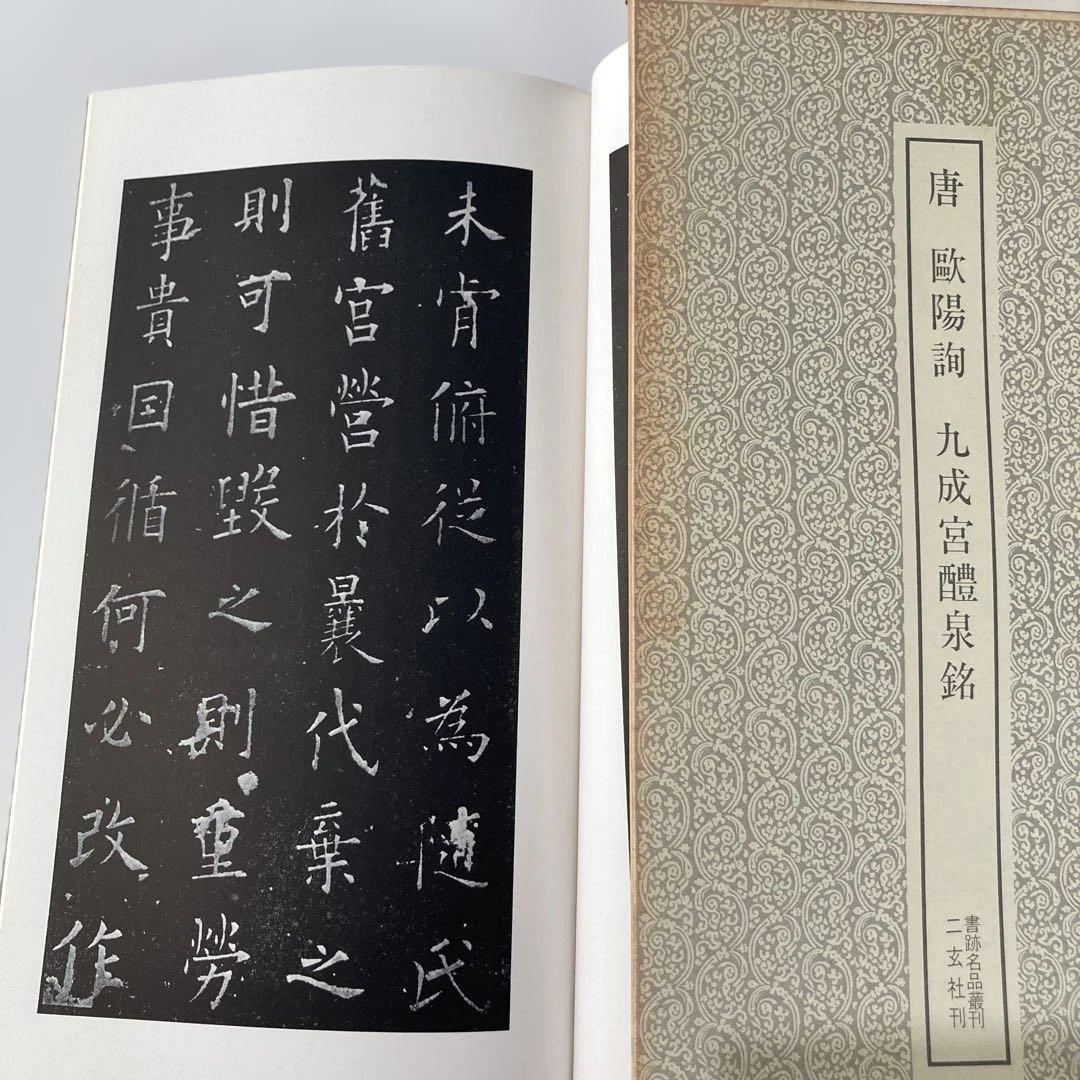 唐 歐陽詢 九成宮醴泉銘
書跡名品叢刊
二玄社刊
未肯俯從以為隨氏
舊宮營於曩代棄之
則可惜毀之則重勞
事貴因循何必改作